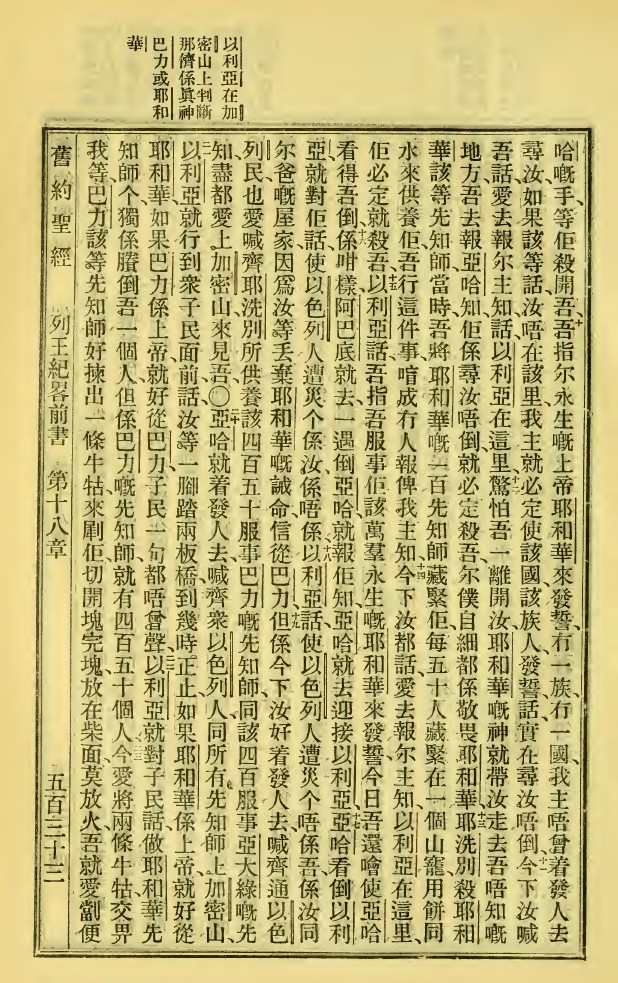 以利亞在加
密山上判斷
那儕係眞神
巴力或耶和
華
哈嘅手等佢殺開吾十吾指尔永生嘅上帝耶和華來發誓冇一族冇一國我主唔曾着發人去
尋汝如果該等話汝唔在該里我主就必定使該國該族人發誓話實在尋汝唔倒十一今下汝喊
吾話愛去報尔主知話以利亞在這里十二驚怕吾一離開汝耶和華嘅神就帶汝走去吾唔知嘅
地方吾去報亞哈知佢係尋汝唔倒就必定殺吾尔僕自細都係敬畏耶和華十三耶洗別殺耶和
華該等先知師當時吾將耶和華嘅一百先知師藏緊佢每五十人藏緊在一個山窿用餅同
水來供養佢吾行這件事唷成冇人報俾我主知十四今下汝都話愛去報尔主知以利亞在這里
佢必定就殺吾十五以利亞話吾指吾服事佢該萬羣永生嘅耶和華來發誓今日吾還噲使亞哈
看得吾倒十六係咁樣阿巴底就去一遇倒亞哈就報佢知亞哈就去迎接以利亞十七亞哈看倒以利
亞就對佢話使以色列人遭災个係汝係唔係十八以利亞話使以色列人遭災个唔係吾係汝同
尔爸嘅屋家因爲汝等丢棄耶和華嘅誡命信從巴力十九但係今下汝好着發人去喊齊通以色
列民也愛喊齊耶洗別所供養該四百五十服事巴力嘅先知師同該四百服事亞大綠嘅先
知盡都愛上加密山來見吾〇二十亞哈就着發人去喊齊衆以色列人同所有先知師上加密山
二一以利亞就行到衆子民面前話汝等一腳踏兩板橋到幾時正止如果耶和華係上帝就好從
耶和華如果巴力係上帝就好從巴力子民一句都唔曾聲二二以利亞就對子民話做耶和華先
知師个獨係賸倒吾一個人但係巴力嘅先知師就有四百五十個人二三今愛將兩條牛牯交畀
我等巴力該等先知師好揀出一條牛牯來刷佢切開塊完塊放在柴面莫放火吾就愛劏便
舊約聖經 列王紀畧前書 第十八章 五百三十三